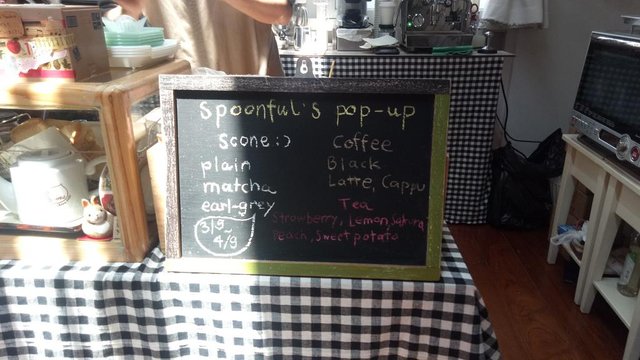 Spoonful's pop-up
Scone :)
plain
matcha
earl-grey
3/9~
4/9
Coffee
Black
Latte, Cappu
Tea
Strawberry, Lemon, Sakura
Peach, Sweet potato